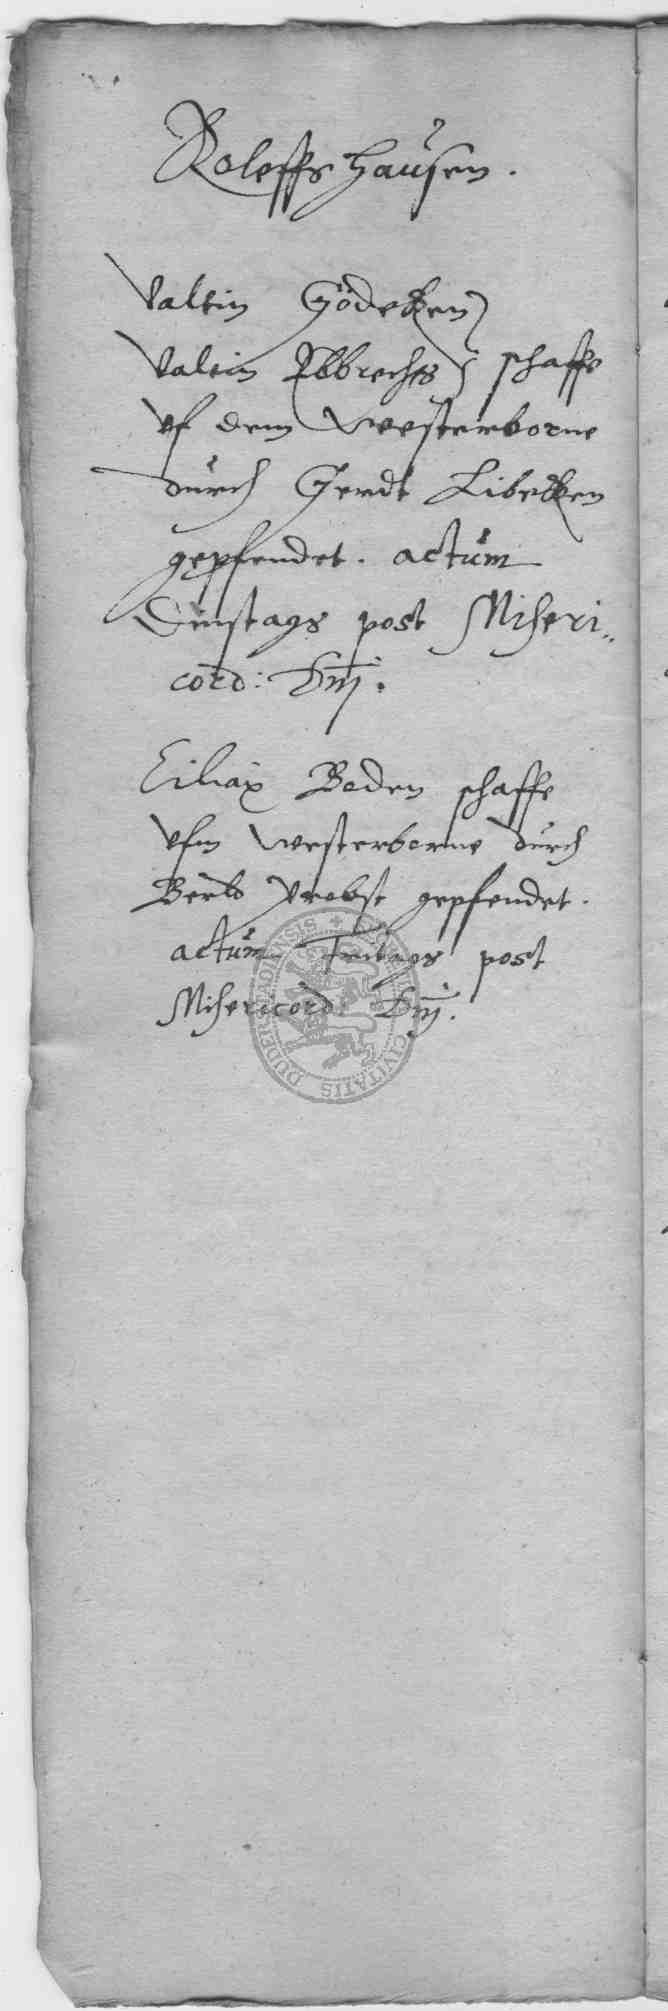 Roleffshausen.
Valtin Gödeken
Valtin Ebbrechts schaffe
uf dem Westerborne
durch Gerdt Libecken
gepfendet. actum
Dinstags post Miseri„
cord: Dnj.
Ciliax Boden schaffe
ufm Westerborne durch
Berlt Probst gepfendet.
actum Freitags post
Misericord: Dnj.
CIVITATIS DUDERSTADENSIS